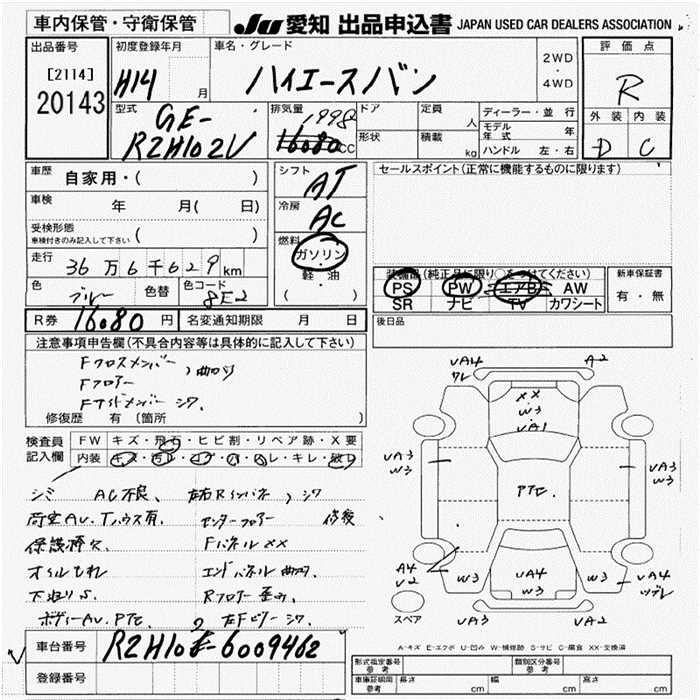 車内保管・守衛保管
JU 愛知 出品申込書 JAPAN USED CAR DEALERS ASSOCIATION
出品番号
[2114]
20143
初度登録年月
H14 月
車名・グレード
ハイエースバン
2WD
・
4WD
評価点
R
外装 内装
D C
型式
GE-
RZH102V
排気量
1998
16080cc
ドア
形状
定員
人
積載
kg
ディーラー・並行
モデル年式 年
ハンドル 左・右
車歴 自家用・( )
車検 年 月( 日)
受検形態
車検付きのみ記入して下さい ( )
走行 36万6千629km
色 ブルー 色替 色コード 8E2
R券 16080円 名変通知期限 月 日
シフト
AT
冷房
AC
燃料
ガソリン
・
軽・油
( )
セールスポイント(正常に機能するものに限ります)
装備品(純正品に限り○をつけてください)
PS PW エアB AW
SR ナビ TV カワシート
新車保証書
有・無
後日品
注意事項申告欄(不具合内容等は具体的に記入して下さい)
Fクロスメンバー
Fフロアー 、曲り
Fサイドメンバー シワ.
修復歴 有 (箇所 )
検査員記入欄
FW キズ・飛石・ヒビ割・リペア跡・X要
内装 キズ・汚レ・コゲ・穴・ヒレ・キレ・破レ
シミ AC不良、 左右Rインパネ、シワ
荷室AU.Tハウス有. センターフロアー 修復
保護棒欠 FパネルXX
オイルもれ エンドパネル曲り.
下廻りS. Rフロアー歪み.
ボディーAU.PTセ. 左Fピラーシワ.
車台番号 RZH102-6009462
登録番号
UA4
ワレ
A2
XX
W3
UA1
UA3
W3
PTセ.
UA3
W3
A4
U2
W3
UA4
W3
W3
UA4
ツギレ
スペア
UA3
UA2
A-キズ E-エクボ U-凹み W-補修跡 S-サビ C-腐食 XX-交換済
形式指定番号
参考
類別区分番号
参考
車庫証明用
参考
長さ cm 幅 cm 高さ cm